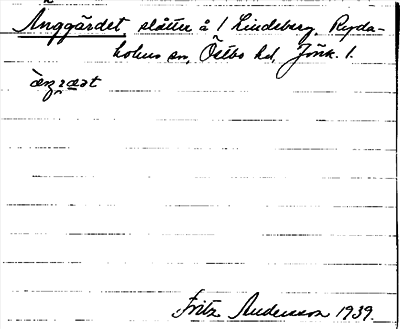 Änggärdet slåtter å 1 Lindsberg, Ryda-
holms sn, Östbo hd, Jönk. l.
Fritz Andersson 1939.